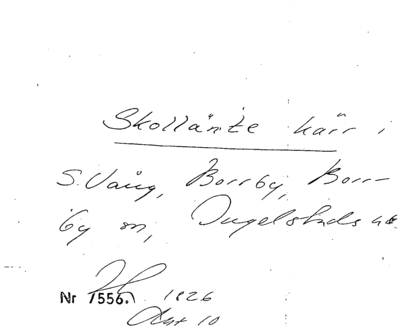 Skollänte kärr i
S. Vång, Borrby, Borr-
by sn, Ingelstads hd.
Nr 7556. 1826
Akt 10